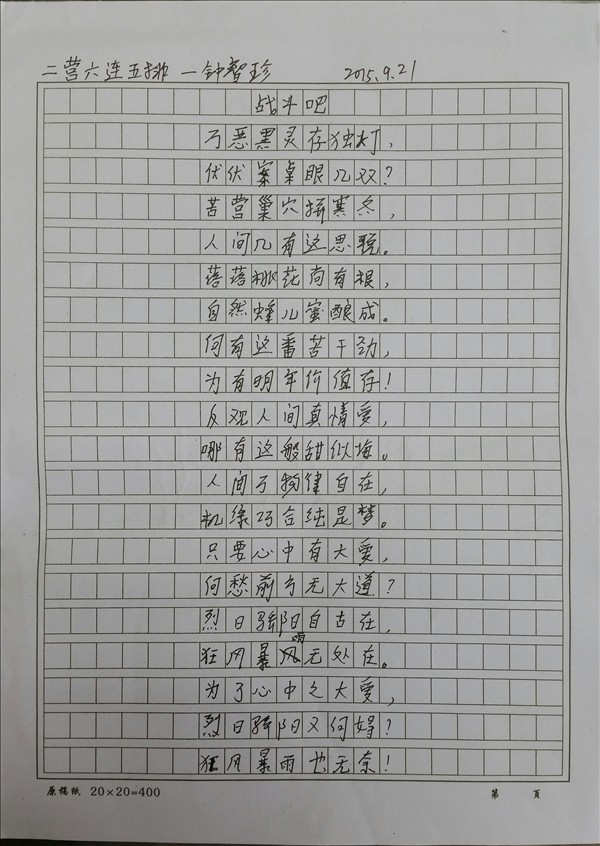 二营六连五排 一钟智珍 2015.9.21
战斗吧
万恶黑灵存独灯，
伏伏案桌眼几双？
苦营巢穴挤寒冬，
人间几有这思锐。
落落桃花尚有根，
自然蜂儿蜜酿成。
何有这番苦干劲，
为有明年价值存！
反观人间真情爱，
哪有这般甜似海。
人间万物律自在，
机缘巧合纯是梦。
只要心中有大爱，
何愁前方无大道？
烈日骄阳自古在，
狂风暴雨无处在。
为了心中之大爱，
烈日骄阳又何妨？
狂风暴雨也无奈！
原稿纸 20×20=400 第 页